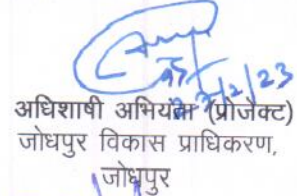 अधिशाषी अभियंता (प्रोजेक्ट)
जोधपुर विकास प्राधिकरण,
जोधपुर